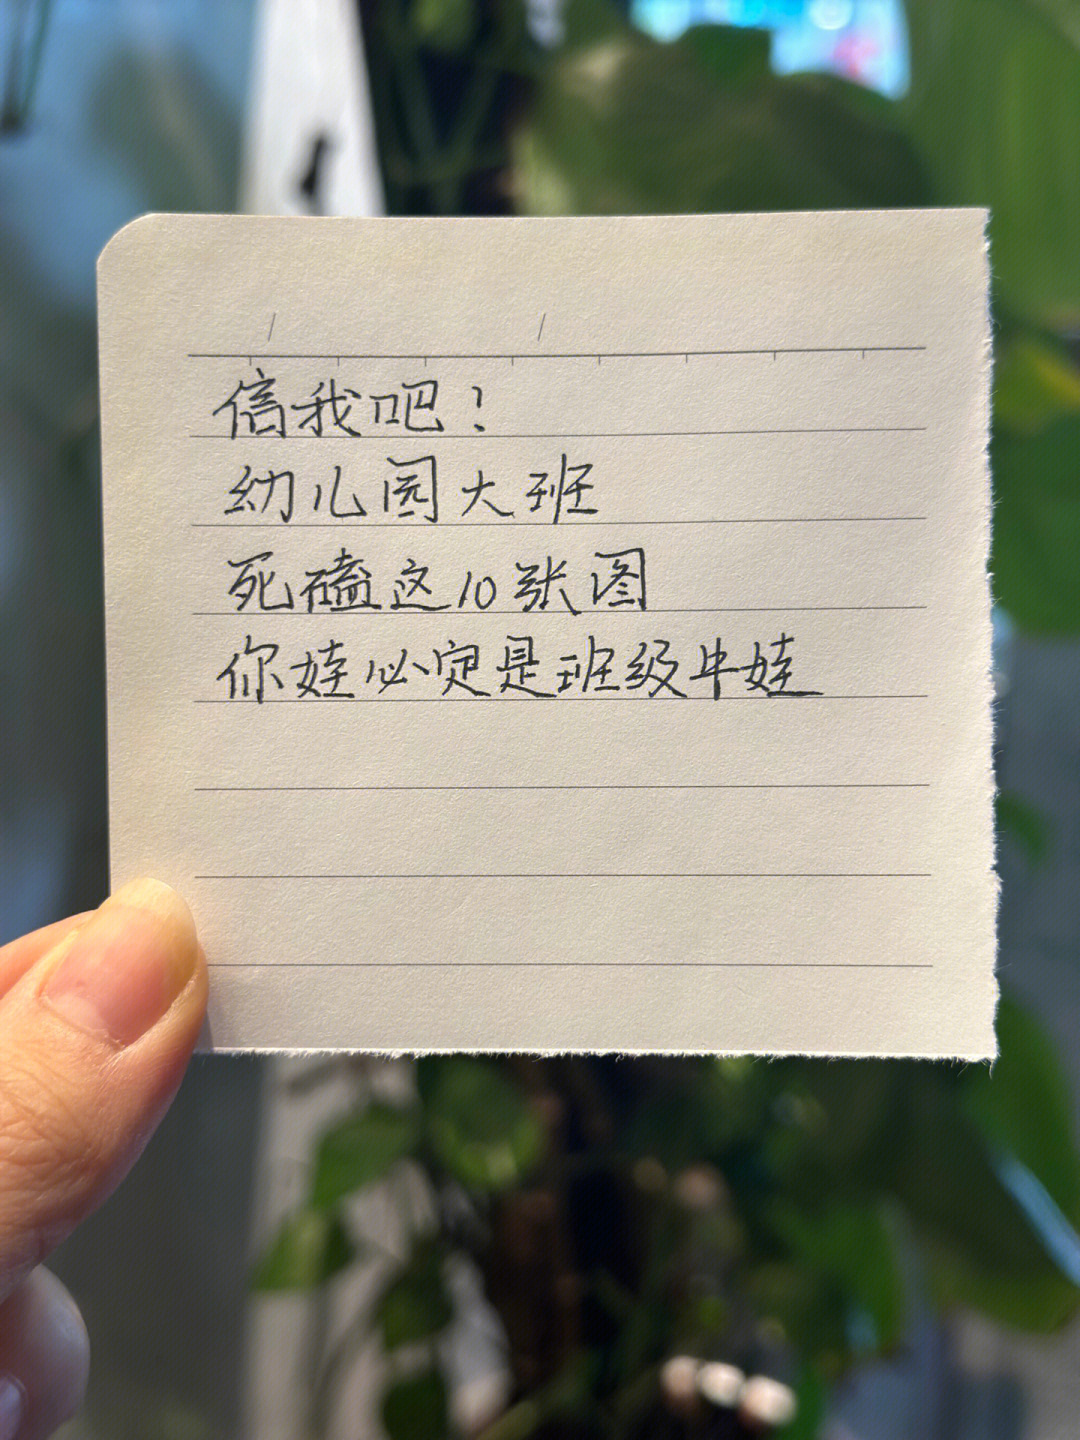 信我吧！
幼儿园大班
死磕这10张图
你娃必定是班级牛娃